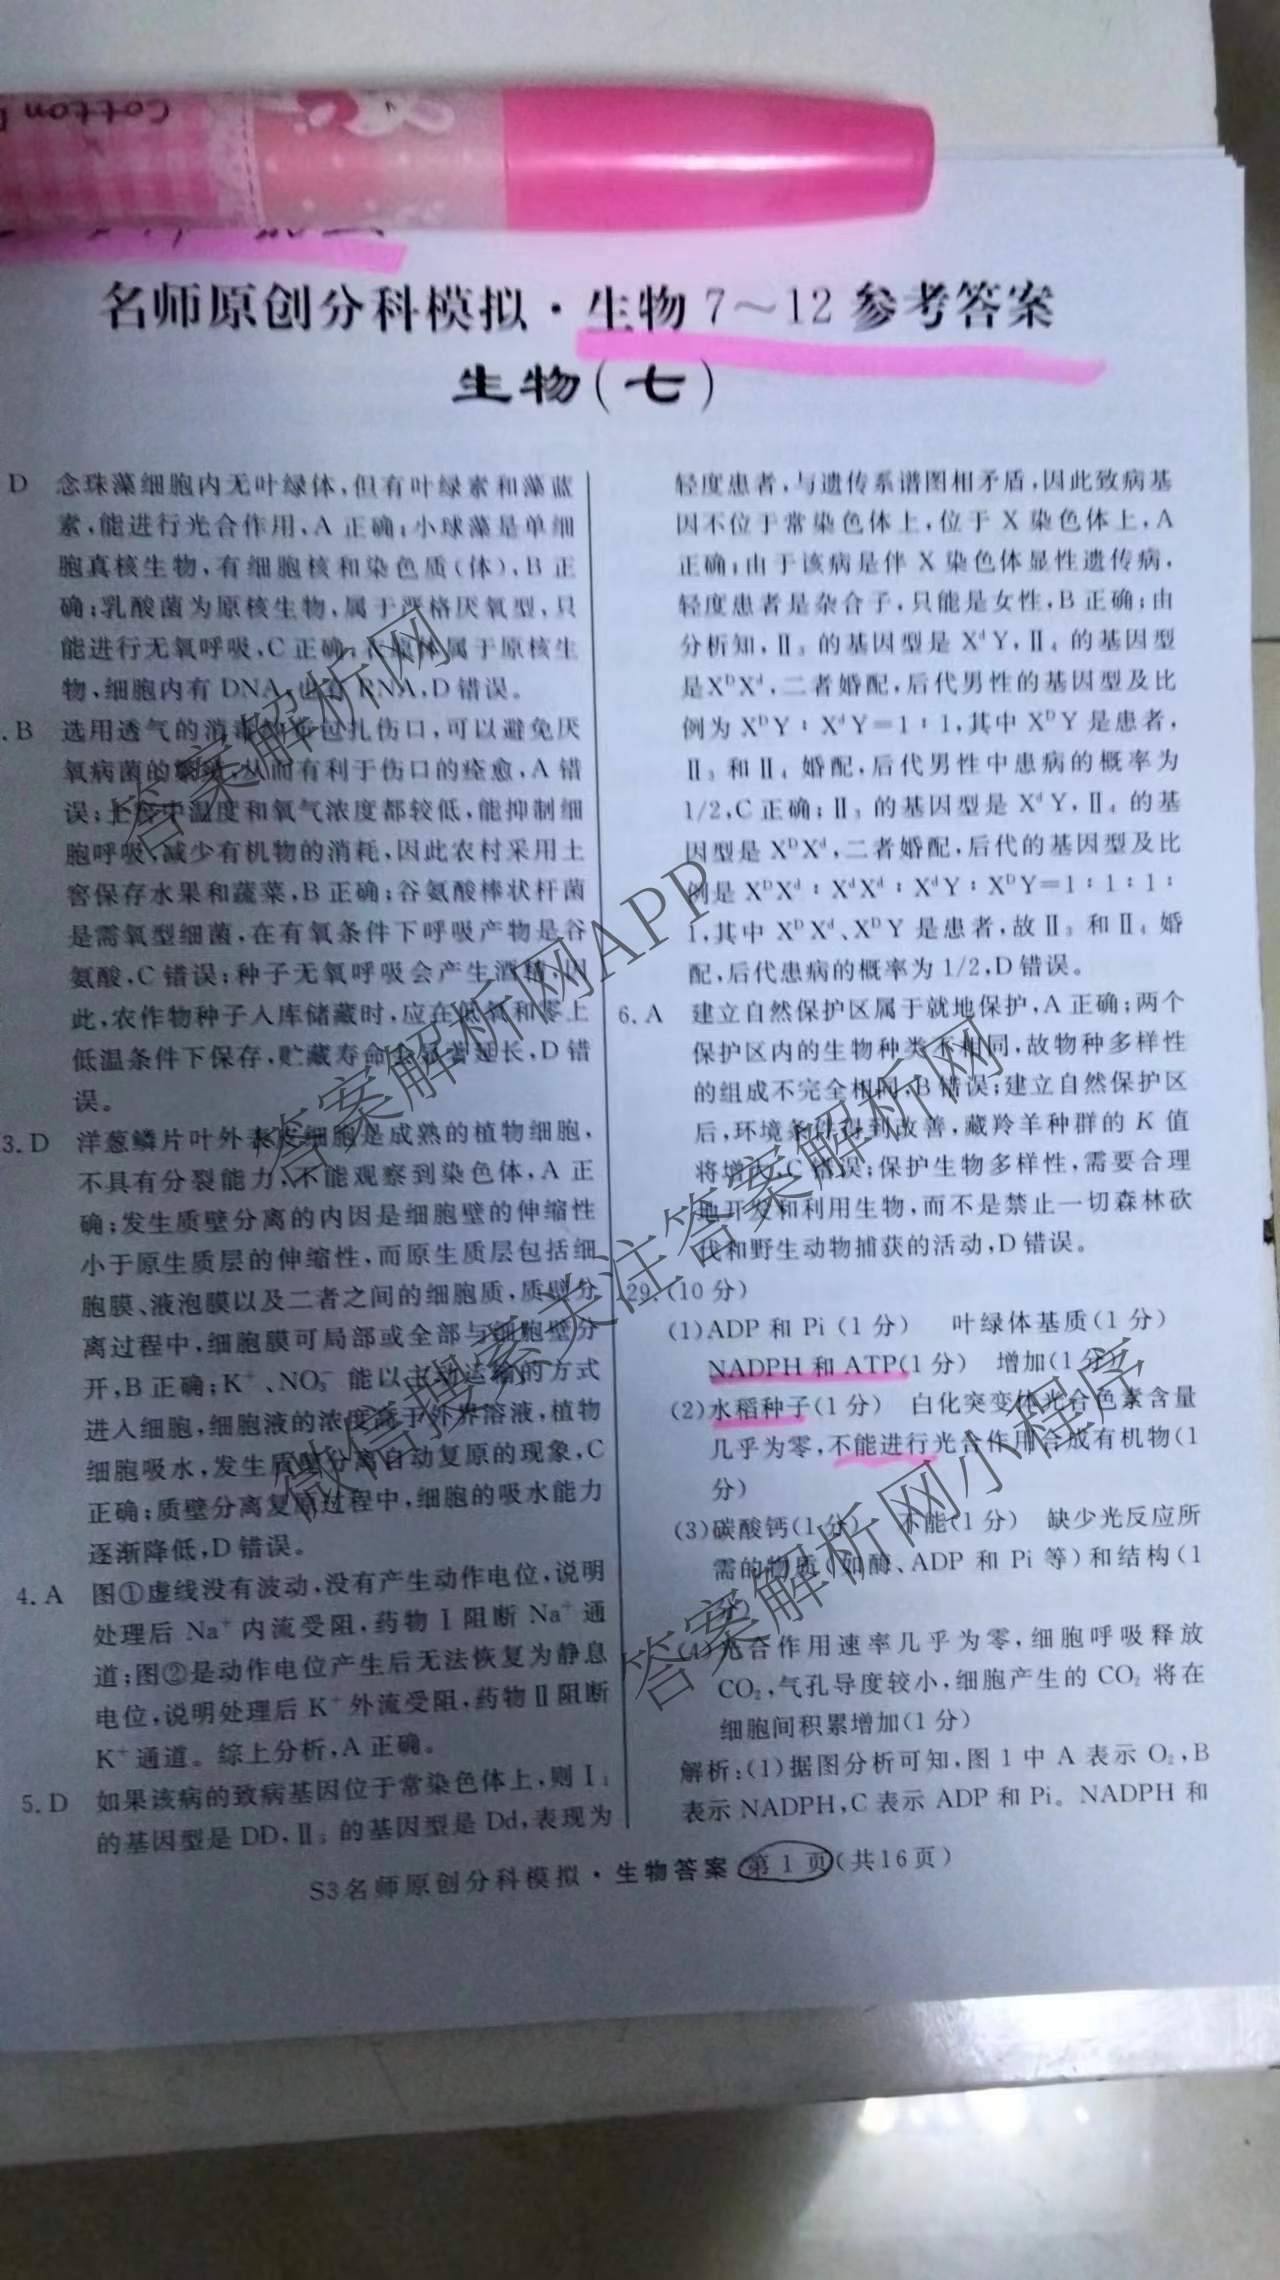 Cotton
名师原创分科模拟·生物7～12参考答案
生物(七)
D 念珠藻细胞内无叶绿体,但有叶绿素和藻蓝
素,能进行光合作用,A正确;小球藻是单细
胞真核生物,有细胞核和染色质(体),B正
确;乳酸菌为原核生物,属于严格厌氧型,只
能进行无氧呼吸,C正确;体属于原核生
物,细胞内有DNA,也有RNA,D错误。
.B 选用透气的消毒布包扎伤口,可以避免厌
氧病菌的繁殖,从而有利于伤口的痊愈,A错
误;土窖中温度和氧气浓度都较低,能抑制细
胞呼吸,减少有机物的消耗,因此农村采用土
窖保存水果和蔬菜,B正确;谷氨酸棒状杆菌
是需氧型细菌,在有氧条件下呼吸产物是谷
氨酸,C错误;种子无氧呼吸会产生酒精,因
此,农作物种子入库储藏时,应在低氧和零上
低温条件下保存,贮藏寿命会显著延长,D错
误。
3.D 洋葱鳞片叶外表皮细胞是成熟的植物细胞,
不具有分裂能力,不能观察到染色体,A正
确;发生质壁分离的内因是细胞壁的伸缩性
小于原生质层的伸缩性,而原生质层包括细
胞膜、液泡膜以及二者之间的细胞质,质壁分
离过程中,细胞膜可局部或全部与细胞壁分
开,B正确;K⁺、NO₃⁻能以主动运输的方式
进入细胞,细胞液的浓度高于外界溶液,植物
细胞吸水,发生质壁分离自动复原的现象,C
正确;质壁分离复原过程中,细胞的吸水能力
逐渐降低,D错误。
4.A 图①虚线没有波动,没有产生动作电位,说明
处理后Na⁺内流受阻,药物Ⅰ阻断Na⁺通
道;图②是动作电位产生后无法恢复为静息
电位,说明处理后K⁺外流受阻,药物Ⅱ阻断
K⁺通道。综上分析,A正确。
5.D 如果该病的致病基因位于常染色体上,则Ⅰ₁
的基因型是DD,Ⅱ₃的基因型是Dd,表现为
轻度患者,与遗传系谱图相矛盾,因此致病基
因不位于常染色体上,位于X染色体上,A
正确;由于该病是伴X染色体显性遗传病,
轻度患者是杂合子,只能是女性,B正确;由
分析知,Ⅱ₃的基因型是XᵈY,Ⅱ₄的基因型
是XᴰXᵈ,二者婚配,后代男性的基因型及比
例为XᴰY∶XᵈY=1∶1,其中XᴰY是患者,
Ⅱ₃和Ⅱ₄婚配,后代男性中患病的概率为
1/2,C正确;Ⅱ₃的基因型是XᵈY,Ⅱ₄的基
因型是XᴰXᵈ,二者婚配,后代的基因型及比
例是XᴰXᵈ∶XᵈXᵈ∶XᵈY∶XᴰY=1∶1∶1∶
1,其中XᴰXᵈ、XᴰY是患者,故Ⅱ₃和Ⅱ₄婚
配,后代患病的概率为1/2,D错误。
6.A 建立自然保护区属于就地保护,A正确;两个
保护区内的生物种类不相同,故物种多样性
的组成不完全相同,B错误;建立自然保护区
后,环境条件得到改善,藏羚羊种群的K值
将增大,C错误;保护生物多样性,需要合理
地开发和利用生物,而不是禁止一切森林砍
伐和野生动物捕获的活动,D错误。
29.(10分)
(1)ADP和Pi(1分) 叶绿体基质(1分)
NADPH和ATP(1分) 增加(1分)
(2)水稻种子(1分) 白化突变体光合色素含量
几乎为零,不能进行光合作用合成有机物(1
分)
(3)碳酸钙(1分) 不能(1分) 缺少光反应所
需的物质(如酶、ADP和Pi等)和结构(1
分)
(4)光合作用速率几乎为零,细胞呼吸释放
CO₂,气孔导度较小,细胞产生的CO₂将在
细胞间积累增加(1分)
解析:(1)据图分析可知,图1中A表示O₂,B
表示NADPH,C表示ADP和Pi。NADPH和
S3名师原创分科模拟·生物答案 第1页(共16页)
答案解析网
答案解析网APP
微信搜索关注答案解析网
答案解析网小程序